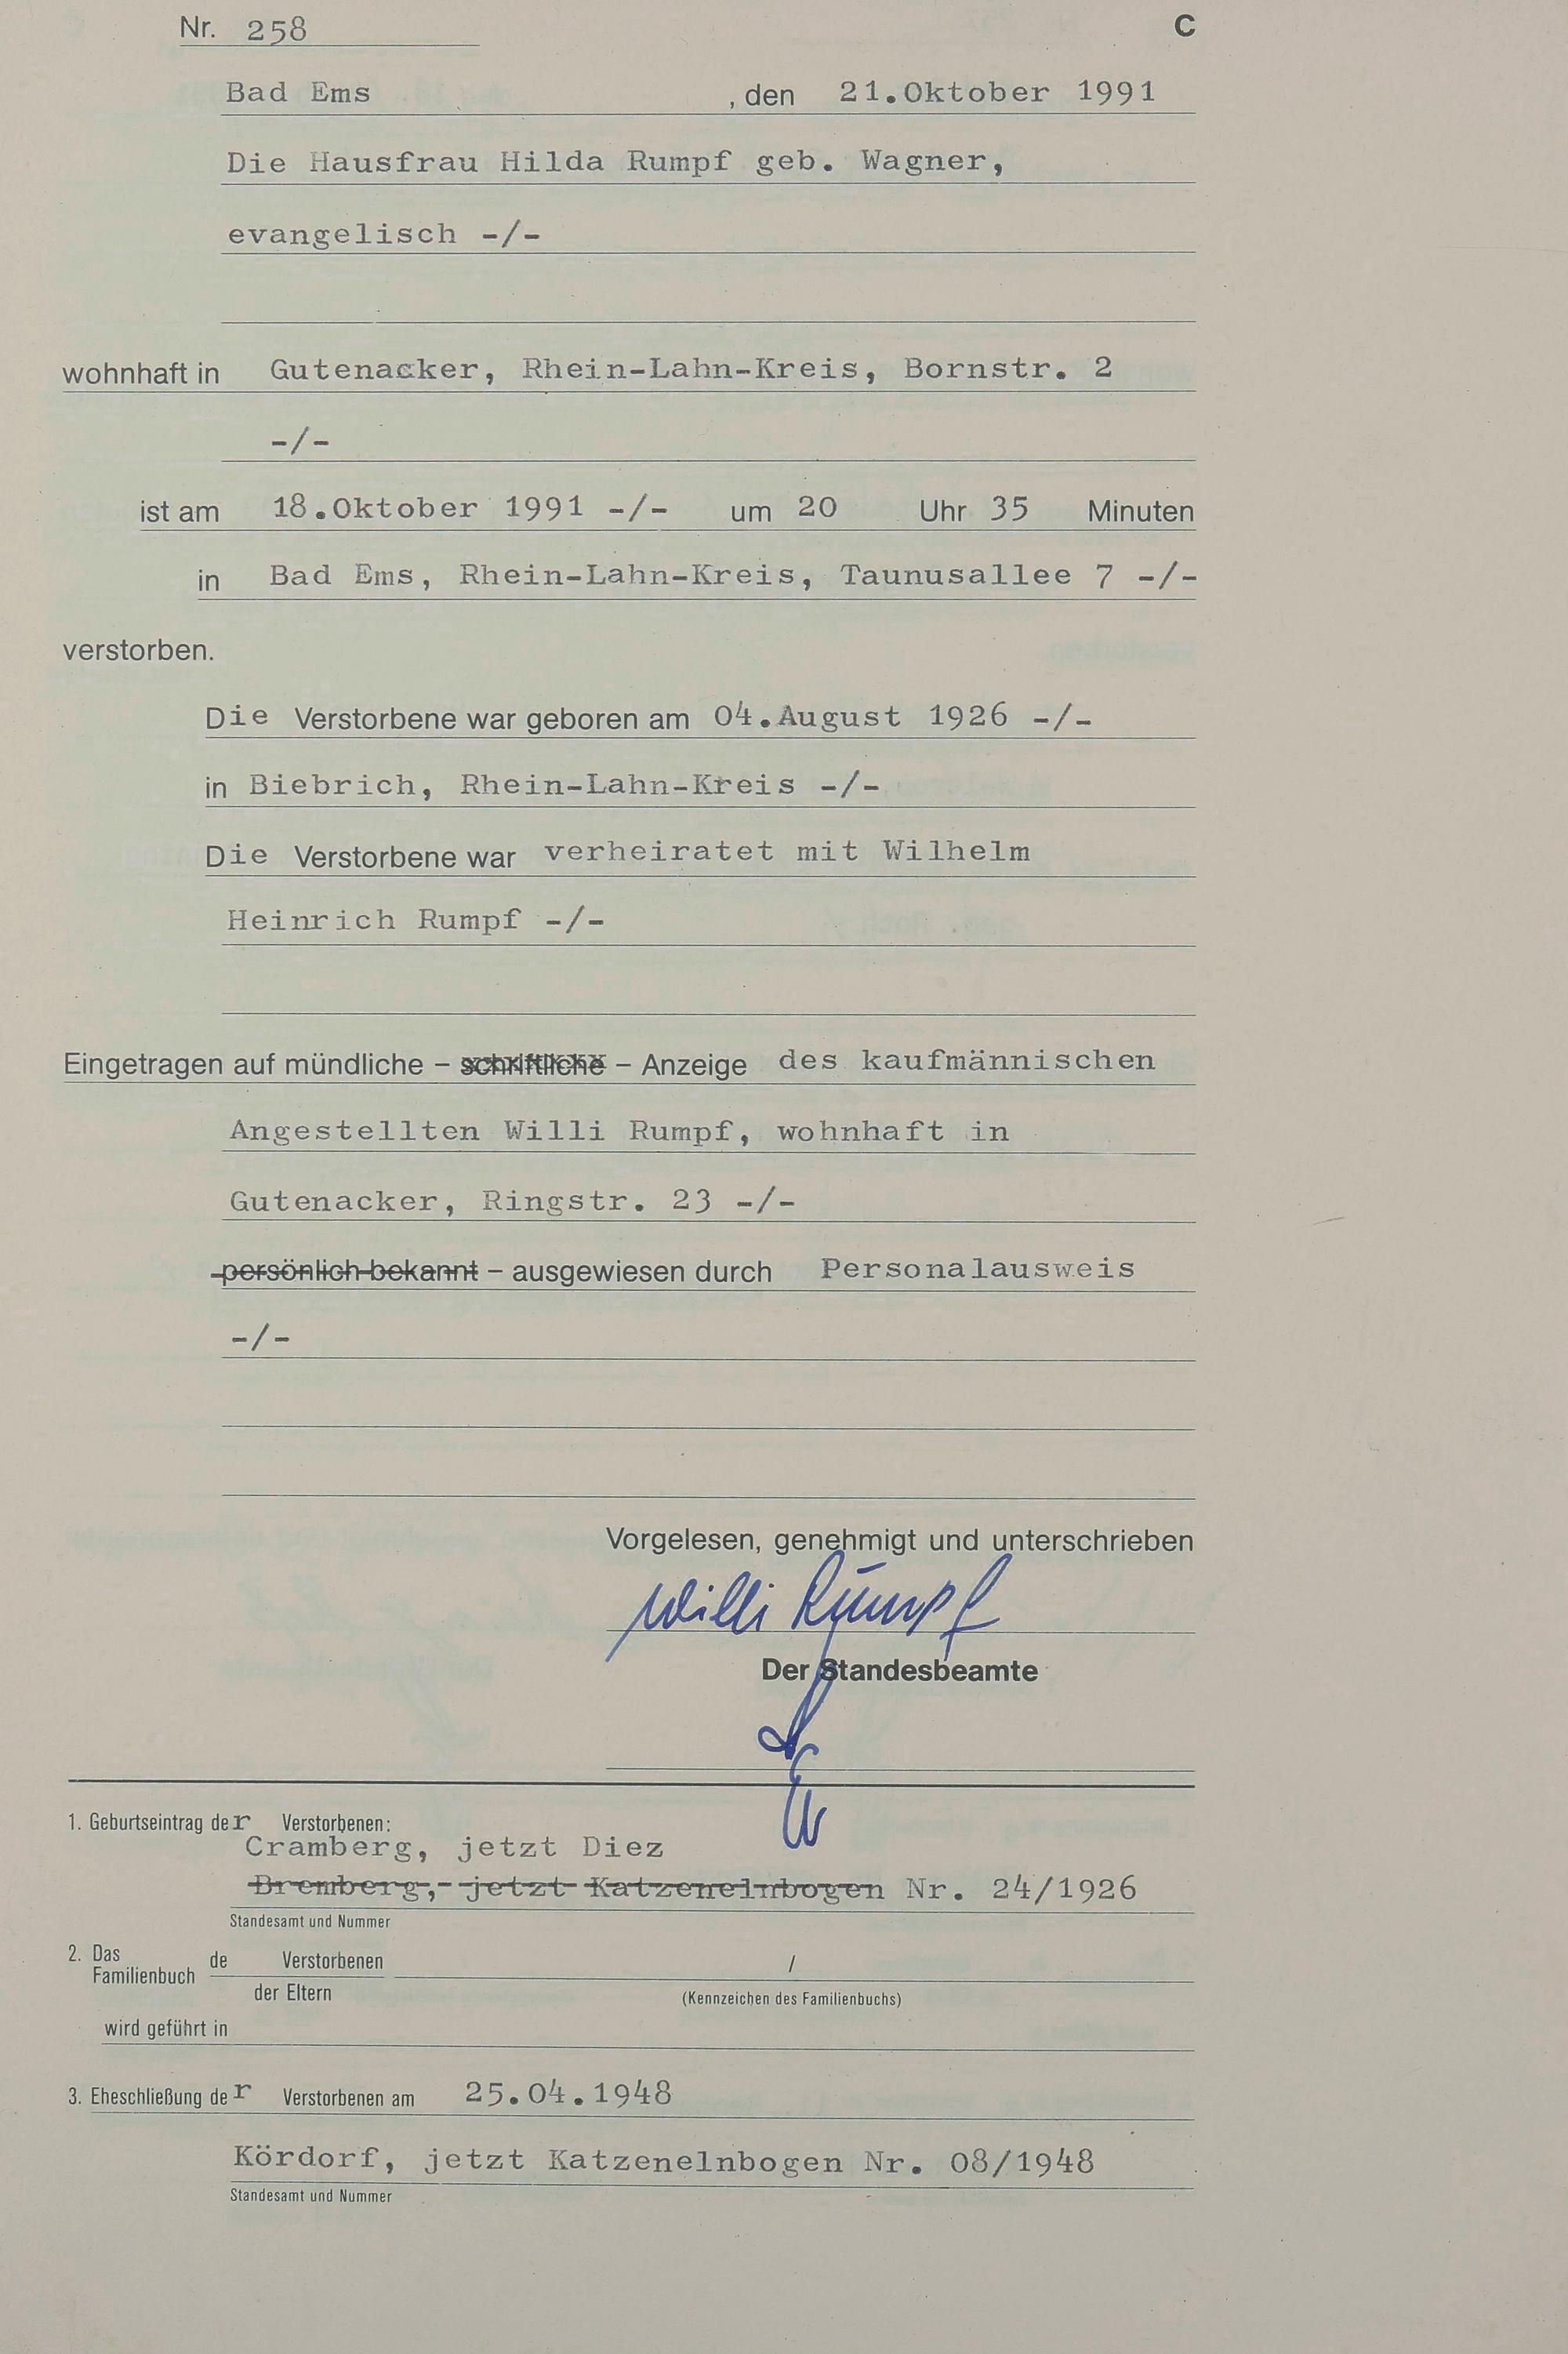 Nr. 258 C
Bad Ems , den 21.Oktober 1991
Die Hausfrau Hilda Rumpf geb. Wagner,
evangelisch -/-
wohnhaft in Gutenacker, Rhein-Lahn-Kreis, Bornstr. 2
-/-
ist am 18.Oktober 1991 -/- um 20 Uhr 35 Minuten
in Bad Ems, Rhein-Lahn-Kreis, Taunusallee 7 -/-
verstorben.
Die Verstorbene war geboren am 04.August 1926 -/-
in Biebrich, Rhein-Lahn-Kreis -/-
Die Verstorbene war verheiratet mit Wilhelm
Heinrich Rumpf -/-
Eingetragen auf mündliche – schriftliche – Anzeige des kaufmännischen
Angestellten Willi Rumpf, wohnhaft in
Gutenacker, Ringstr. 23 -/-
persönlich bekannt – ausgewiesen durch Personalausweis
-/-
Vorgelesen, genehmigt und unterschrieben
Willi Rumpf
Der Standesbeamte
1. Geburtseintrag der Verstorbenen:
Cramberg, jetzt Diez
Bremberg, jetzt Katzenelnbogen Nr. 24/1926
Standesamt und Nummer
2. Das Familienbuch de Verstorbenen /
der Eltern (Kennzeichen des Familienbuchs)
wird geführt in
3. Eheschließung der Verstorbenen am 25.04.1948
Kördorf, jetzt Katzenelnbogen Nr. 08/1948
Standesamt und Nummer